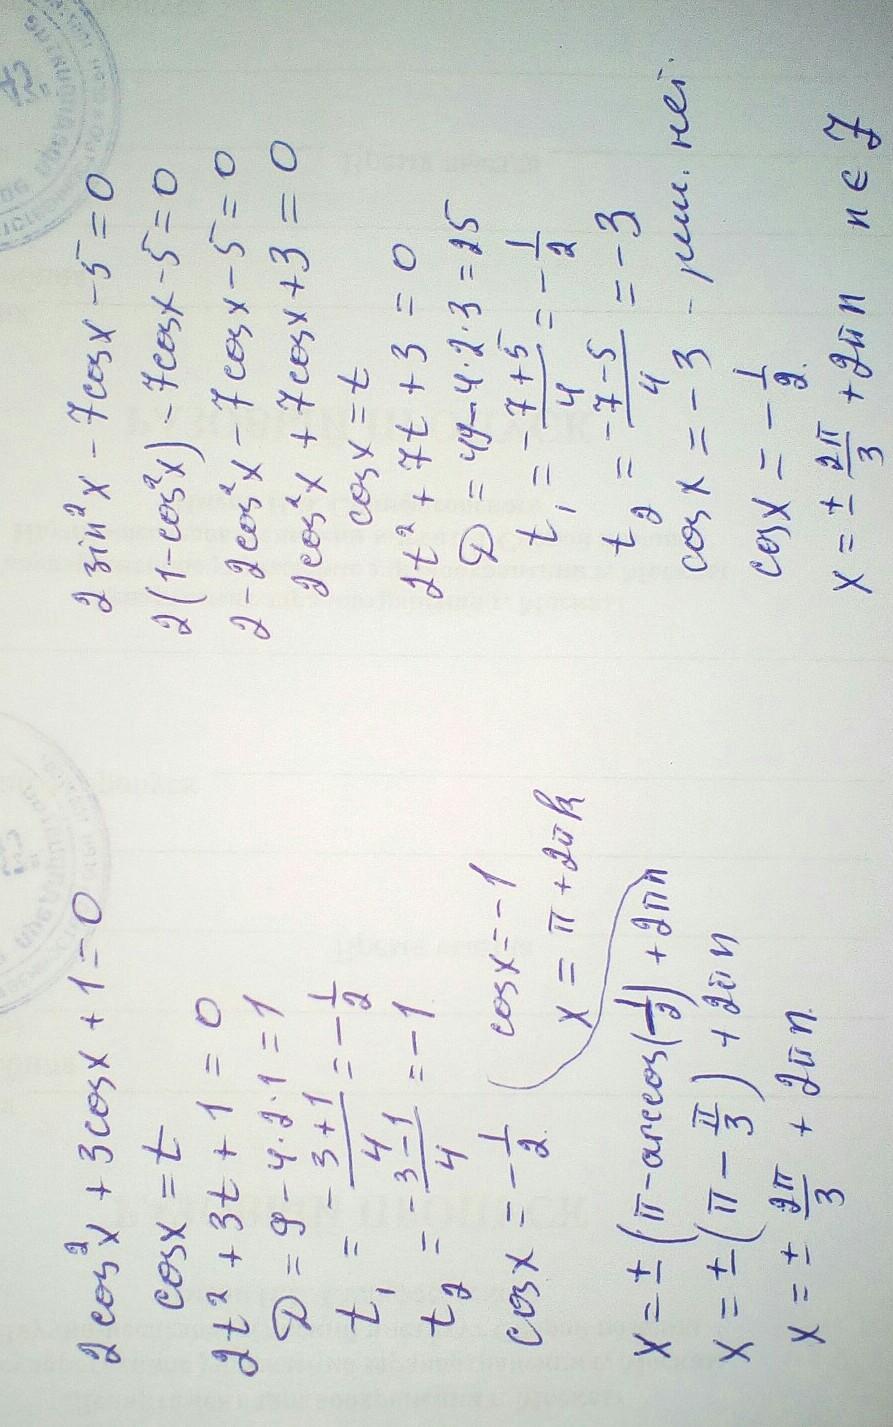 2cos²x + 3cosx + 1 = 0
cosx = t
2t² + 3t + 1 = 0
D = 9 - 4·2·1 = 1
t₁ = -3+1/4 = -1/2
t₂ = -3-1/4 = -1
cosx = -1/2 cosx = -1
x = π + 2πk
x = ± (π - arccos(-1/2)) + 2πn
x = ± (π - π/3) + 2πn
x = ± 2π/3 + 2πn.
2sin²x - 7cosx - 5 = 0
2(1-cos²x) - 7cosx - 5 = 0
2 - 2cos²x - 7cosx - 5 = 0
2cos²x + 7cosx + 3 = 0
cosx = t
2t² + 7t + 3 = 0
D = 49 - 4·2·3 = 25
t₁ = -7+5/4 = -1/2
t₂ = -7-5/4 = -3
cosx = -3 - реш. нет.
cosx = -1/2.
x = ± 2π/3 + 2πn n ∈ Z